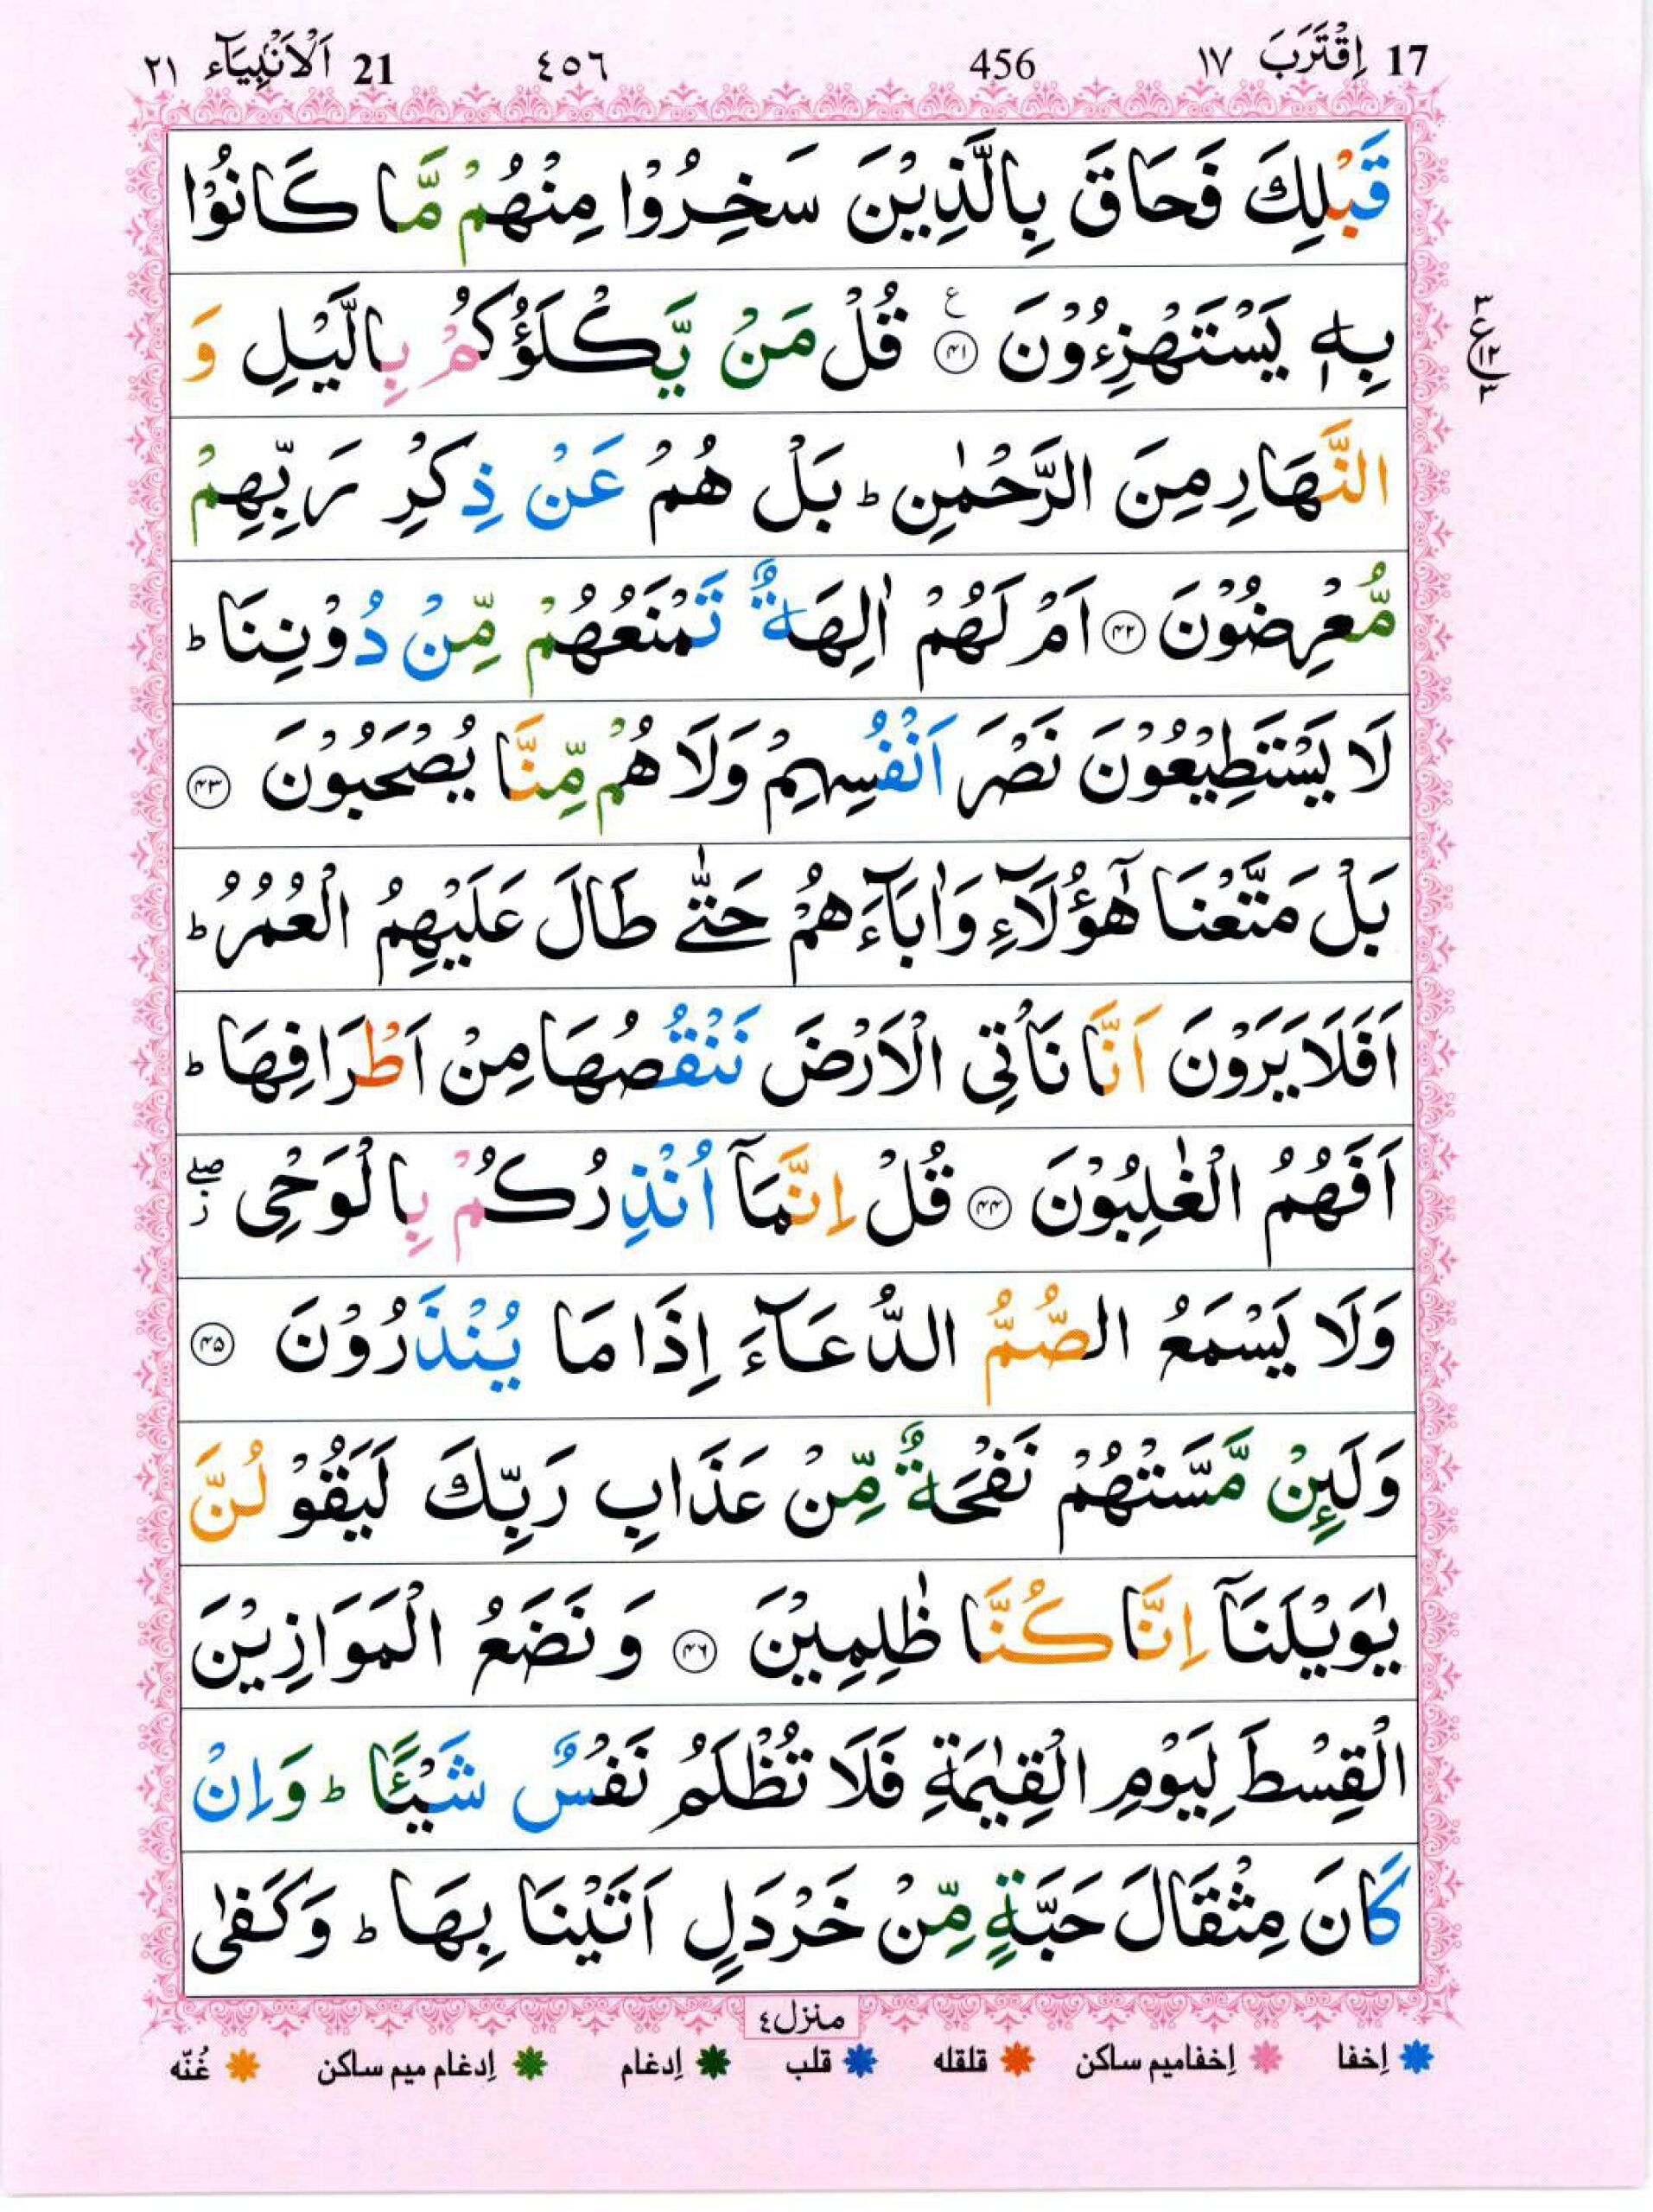 17 اِقْتَرَبَ ١٧ 456 ٤٥٦ 21 اَلْاَنْۢبِيَآء ٢١
قَبْلِكَ فَحَاقَ بِالَّذِيْنَ سَخِرُوْا مِنْهُمْ مَّا كَانُوْا
بِهٖ يَسْتَهْزِءُوْنَ ۴۱ ع قُلْ مَنْ يَّكْلَؤُكُمْ بِالَّيْلِ وَ
النَّهَارِ مِنَ الرَّحْمٰنِ ؕ بَلْ هُمْ عَنْ ذِكْرِ رَبِّهِمْ
مُّعْرِضُوْنَ ۴۲ اَمْ لَهُمْ اٰلِهَةٌ تَمْنَعُهُمْ مِّنْ دُوْنِنَا ؕ
لَا يَسْتَطِيْعُوْنَ نَصْرَ اَنْفُسِهِمْ وَلَا هُمْ مِّنَّا يُصْحَبُوْنَ ۴۳
بَلْ مَتَّعْنَا هٰٓؤُلَآءِ وَاٰبَآءَهُمْ حَتّٰى طَالَ عَلَيْهِمُ الْعُمُرُ ؕ
اَفَلَا يَرَوْنَ اَنَّا نَاْتِى الْاَرْضَ نَنْقُصُهَا مِنْ اَطْرَافِهَا ؕ
اَفَهُمُ الْغٰلِبُوْنَ ۴۴ قُلْ اِنَّمَآ اُنْذِرُكُمْ بِالْوَحْىِ ۖز
وَلَا يَسْمَعُ الصُّمُّ الدُّعَآءَ اِذَا مَا يُنْذَرُوْنَ ۴۵
وَلَىِٕنْ مَّسَّتْهُمْ نَفْحَةٌ مِّنْ عَذَابِ رَبِّكَ لَيَقُوْلُنَّ
يٰوَيْلَنَآ اِنَّا كُنَّا ظٰلِمِيْنَ ۴۶ وَنَضَعُ الْمَوَازِيْنَ
الْقِسْطَ لِيَوْمِ الْقِيٰمَةِ فَلَا تُظْلَمُ نَفْسٌ شَيْـًٔا ؕ وَاِنْ
كَانَ مِثْقَالَ حَبَّةٍ مِّنْ خَرْدَلٍ اَتَيْنَا بِهَا ؕ وَكَفٰى
منزل٤
اِخفا اِخفامیم ساکن قلقله قلب اِدغام اِدغام میم ساکن غُنّه